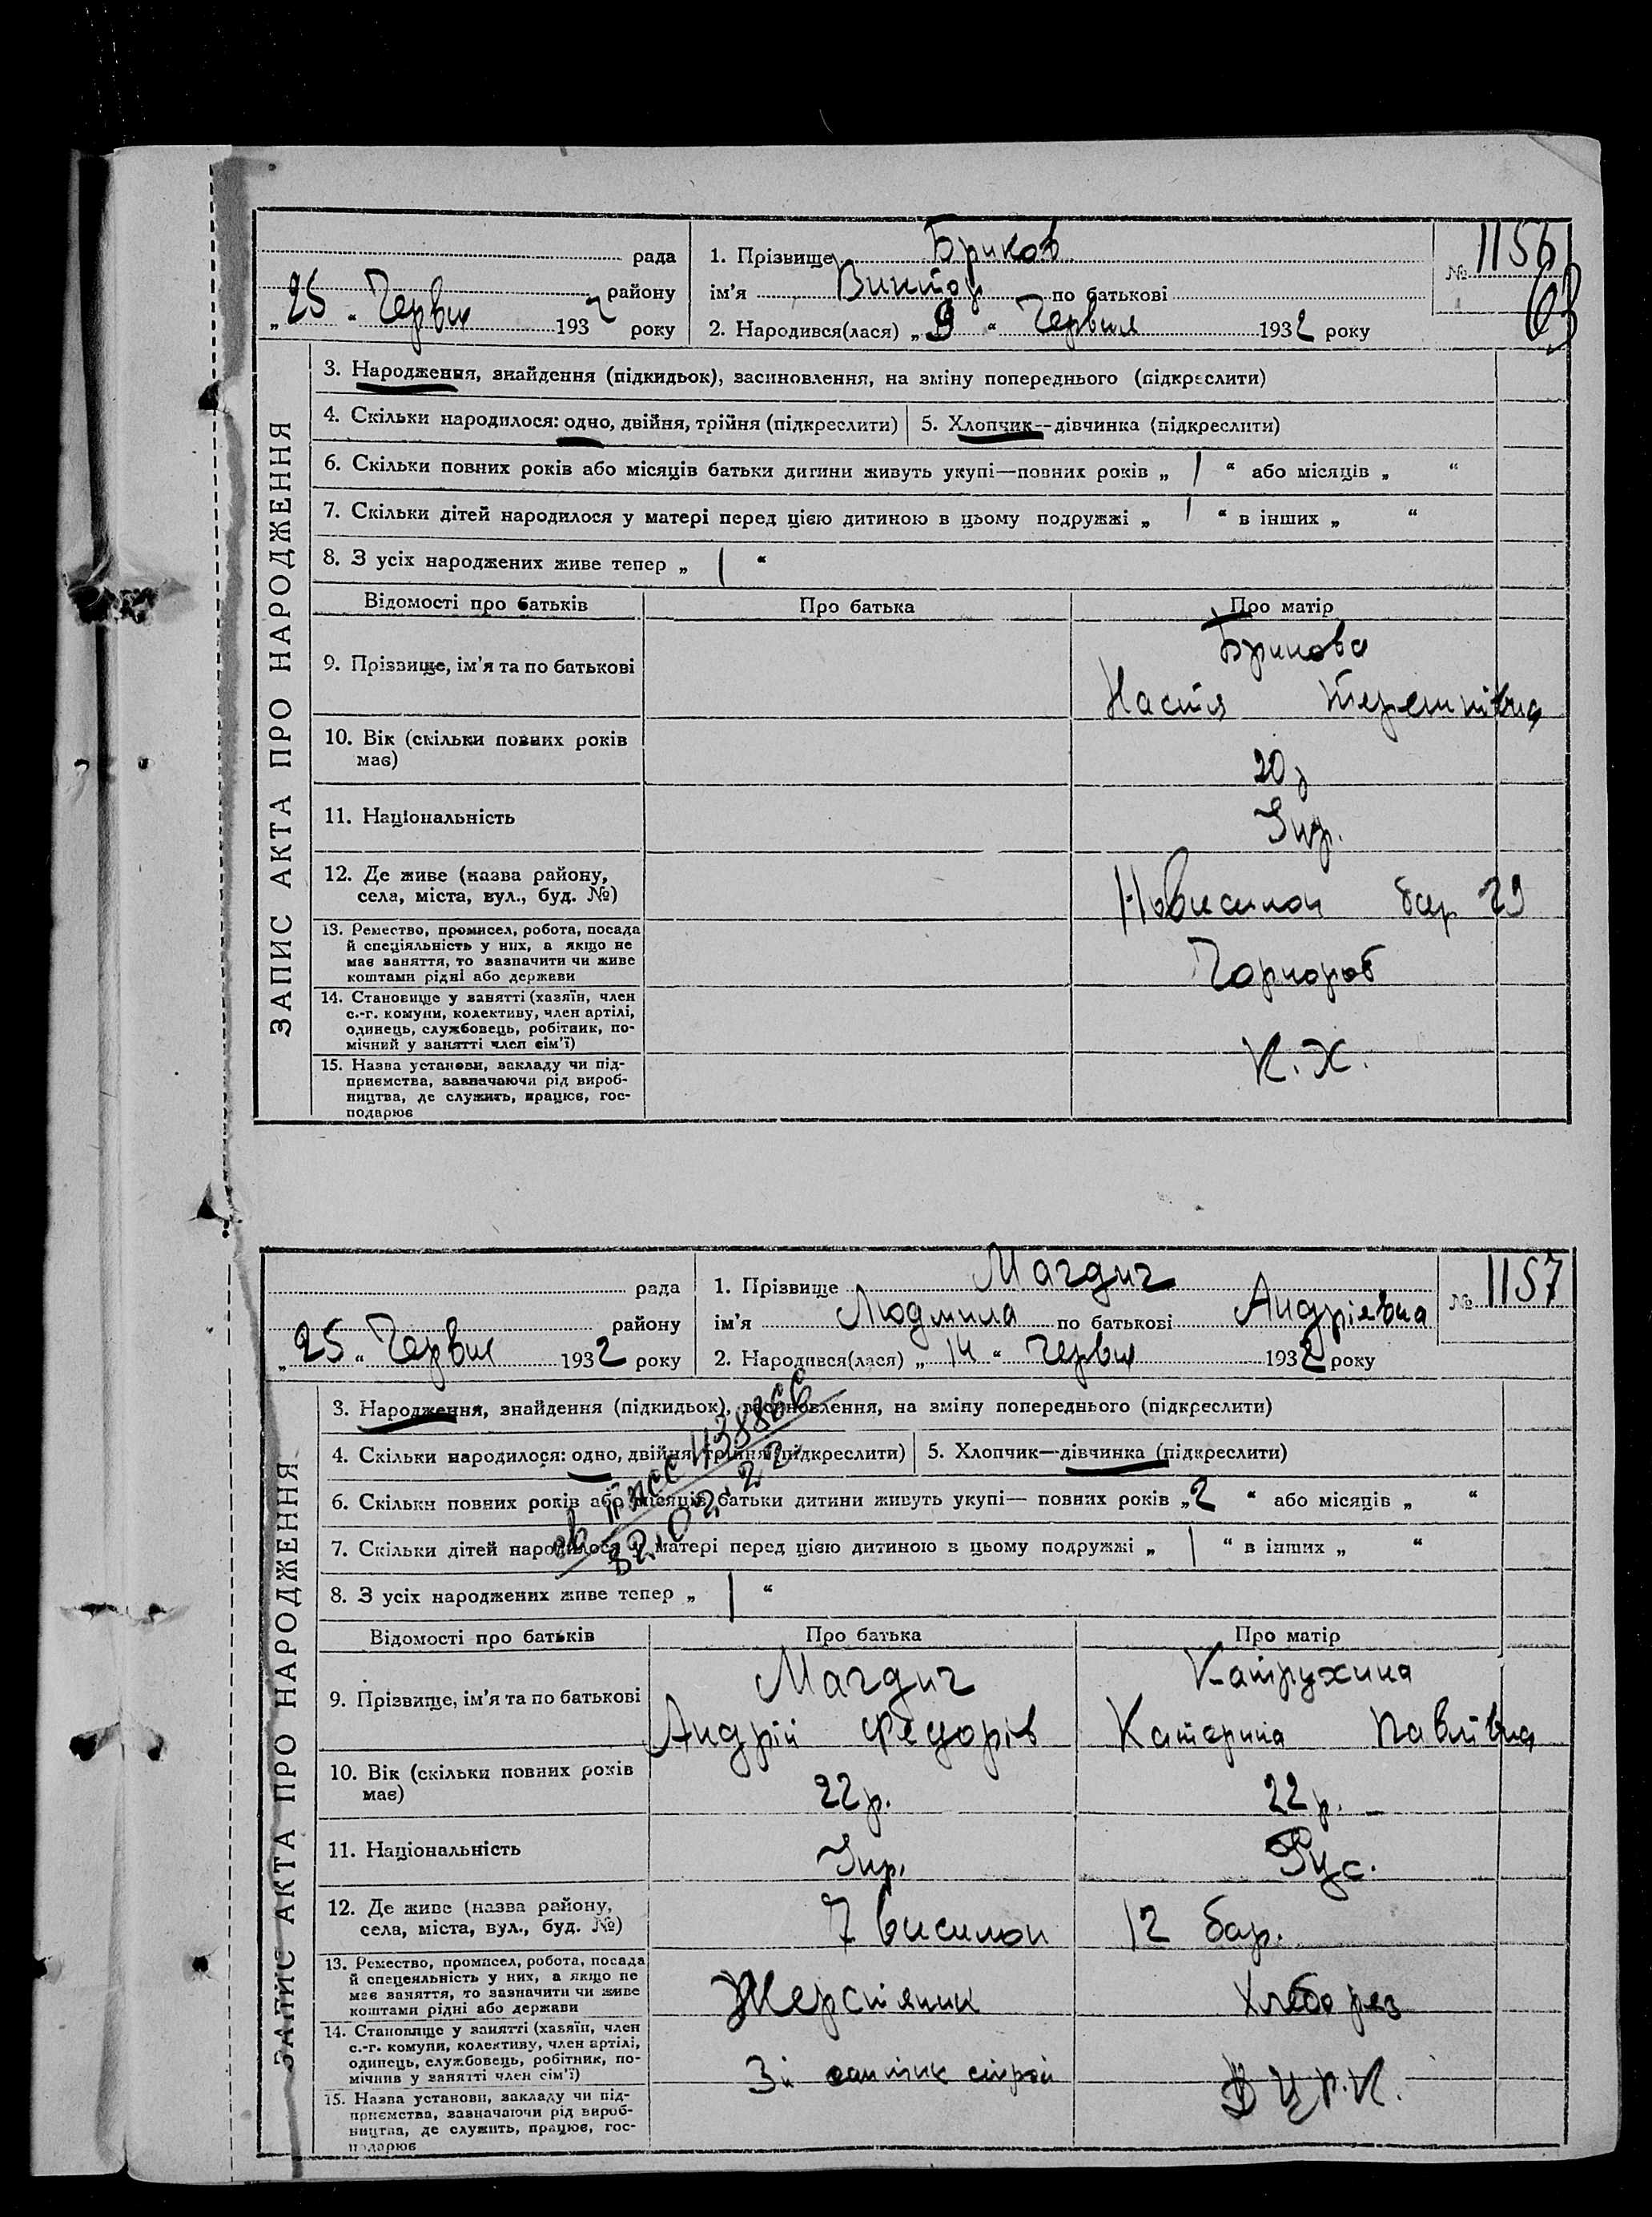 рада
району
„25 “ Червня 1932 року
1. Прізвище Бриков
ім'я Виктор по батькові
2. Народився(лася) „ 9 “ Червня 1932 року
№ 1156
63
ЗАПИС АКТА ПРО НАРОДЖЕННЯ
3. Народження, знайдення (підкидьок), засиновлення, на зміну попереднього (підкреслити)
4. Скільки народилося: одно, двійня, трійня (підкреслити)
5. Хлопчик—дівчинка (підкреслити)
6. Скільки повних років або місяців батьки дитини живуть укупі—повних років „ / “ або місяців „ “
7. Скільки дітей народилося у матері перед цією дитиною в цьому подружжі „ / “ в інших „ “
8. З усіх народжених живе тепер „ / “
Відомості про батьків
Про батька
Про матір
9. Прізвище, ім'я та по батькові
Брикова
Настя
10. Вік (скільки повних років
має)
20 р
11. Національність
Укр.
12. Де живе (назва району,
села, міста, вул., буд. №)
бар 29
13. Ремество, промисел, робота, посада
й спеціяльність у них, а якщо не
має заняття, то зазначити чи живе
коштами рідні або держави
Чорнороб
14. Становище у занятті (хазяїн, член
с.-г. комуни, колективу, член артілі,
одинець, службовець, робітник, по-
мічний у занятті член сім'ї)
15. Назва установи, закладу чи під-
приємства, зазначаючи рід вироб-
ництва, де служить, працює, гос-
подарює
К. Х.
рада
району
„25 “ Червня 1932 року
1. Прізвище Магдич
ім'я Людмила по батькові Андріевна
2. Народився(лася) „ 14 “ Червня 1932 року
№ 1157
ЗАПИС АКТА ПРО НАРОДЖЕННЯ
3. Народження, знайдення (підкидьок), засиновлення, на зміну попереднього (підкреслити)
4. Скільки народилося: одно, двійня, трійня (підкреслити)
5. Хлопчик—дівчинка (підкреслити)
6. Скільки повних років або місяців батьки дитини живуть укупі— повних років „ 2 “ або місяців „ “
7. Скільки дітей народилося у матері перед цією дитиною в цьому подружжі „ / “ в інших „ “
8. З усіх народжених живе тепер „ / “
Відомості про батьків
Про батька
Про матір
9. Прізвище, ім'я та по батькові
Магдич
Андрій Федорів
Катрухина
Катерина Павлівна
10. Вік (скільки повних років
має)
22 р.
22 р.
11. Національність
Укр.
Рус.
12. Де живе (назва району,
села, міста, вул., буд. №)
7 висилок 12 бар.
13. Ремество, промисел, робота, посада
й спецеяльність у них, а якщо не
має заняття, то зазначити чи живе
коштами рідні або держави
Жерстяник
Хлеборез
14. Становище у занятті (хазяїн, член
с.-г. комуни, колективу, член артілі,
одинець, службовець, робітник, по-
мічнив у занятті член сім'ї)
15. Назва установи, закладу чи під-
приємства, зазначаючи рід вироб-
ництва, де служить, працює, гос-
подарює
Ц Р. К.